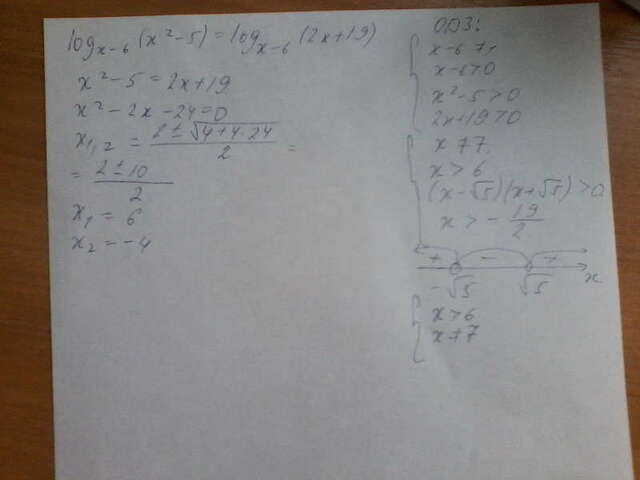 log_{x-6}(x²-5) = log_{x-6}(2x+19)
x²-5 = 2x+19
x²-2x-24=0
x_{1,2} = \frac{2±\sqrt{4+4·24}}{2} =
= \frac{2±10}{2}
x₁ = 6
x₂ = -4
ОДЗ:
x-6≠1
x-6>0
x²-5>0
2x+19>0
x≠7
x>6
(x-√5)(x+√5)>0
x>-\frac{19}{2}
+ - +
-√5 √5 x
x>6
x≠7